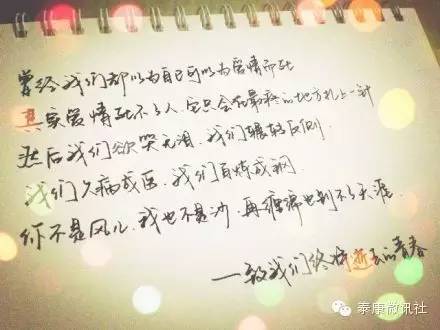 曾经我们都以为自己可以为爱情而死
其实爱情死不了人，它只会在最疼的地方扎上一针
然后我们欲哭无泪，我们辗转反侧
我们久病成医，我们百炼成钢
你不是风儿，我也不是沙，再缠绵也到不了天涯
—致我们终将逝去的青春
泰康微讯社